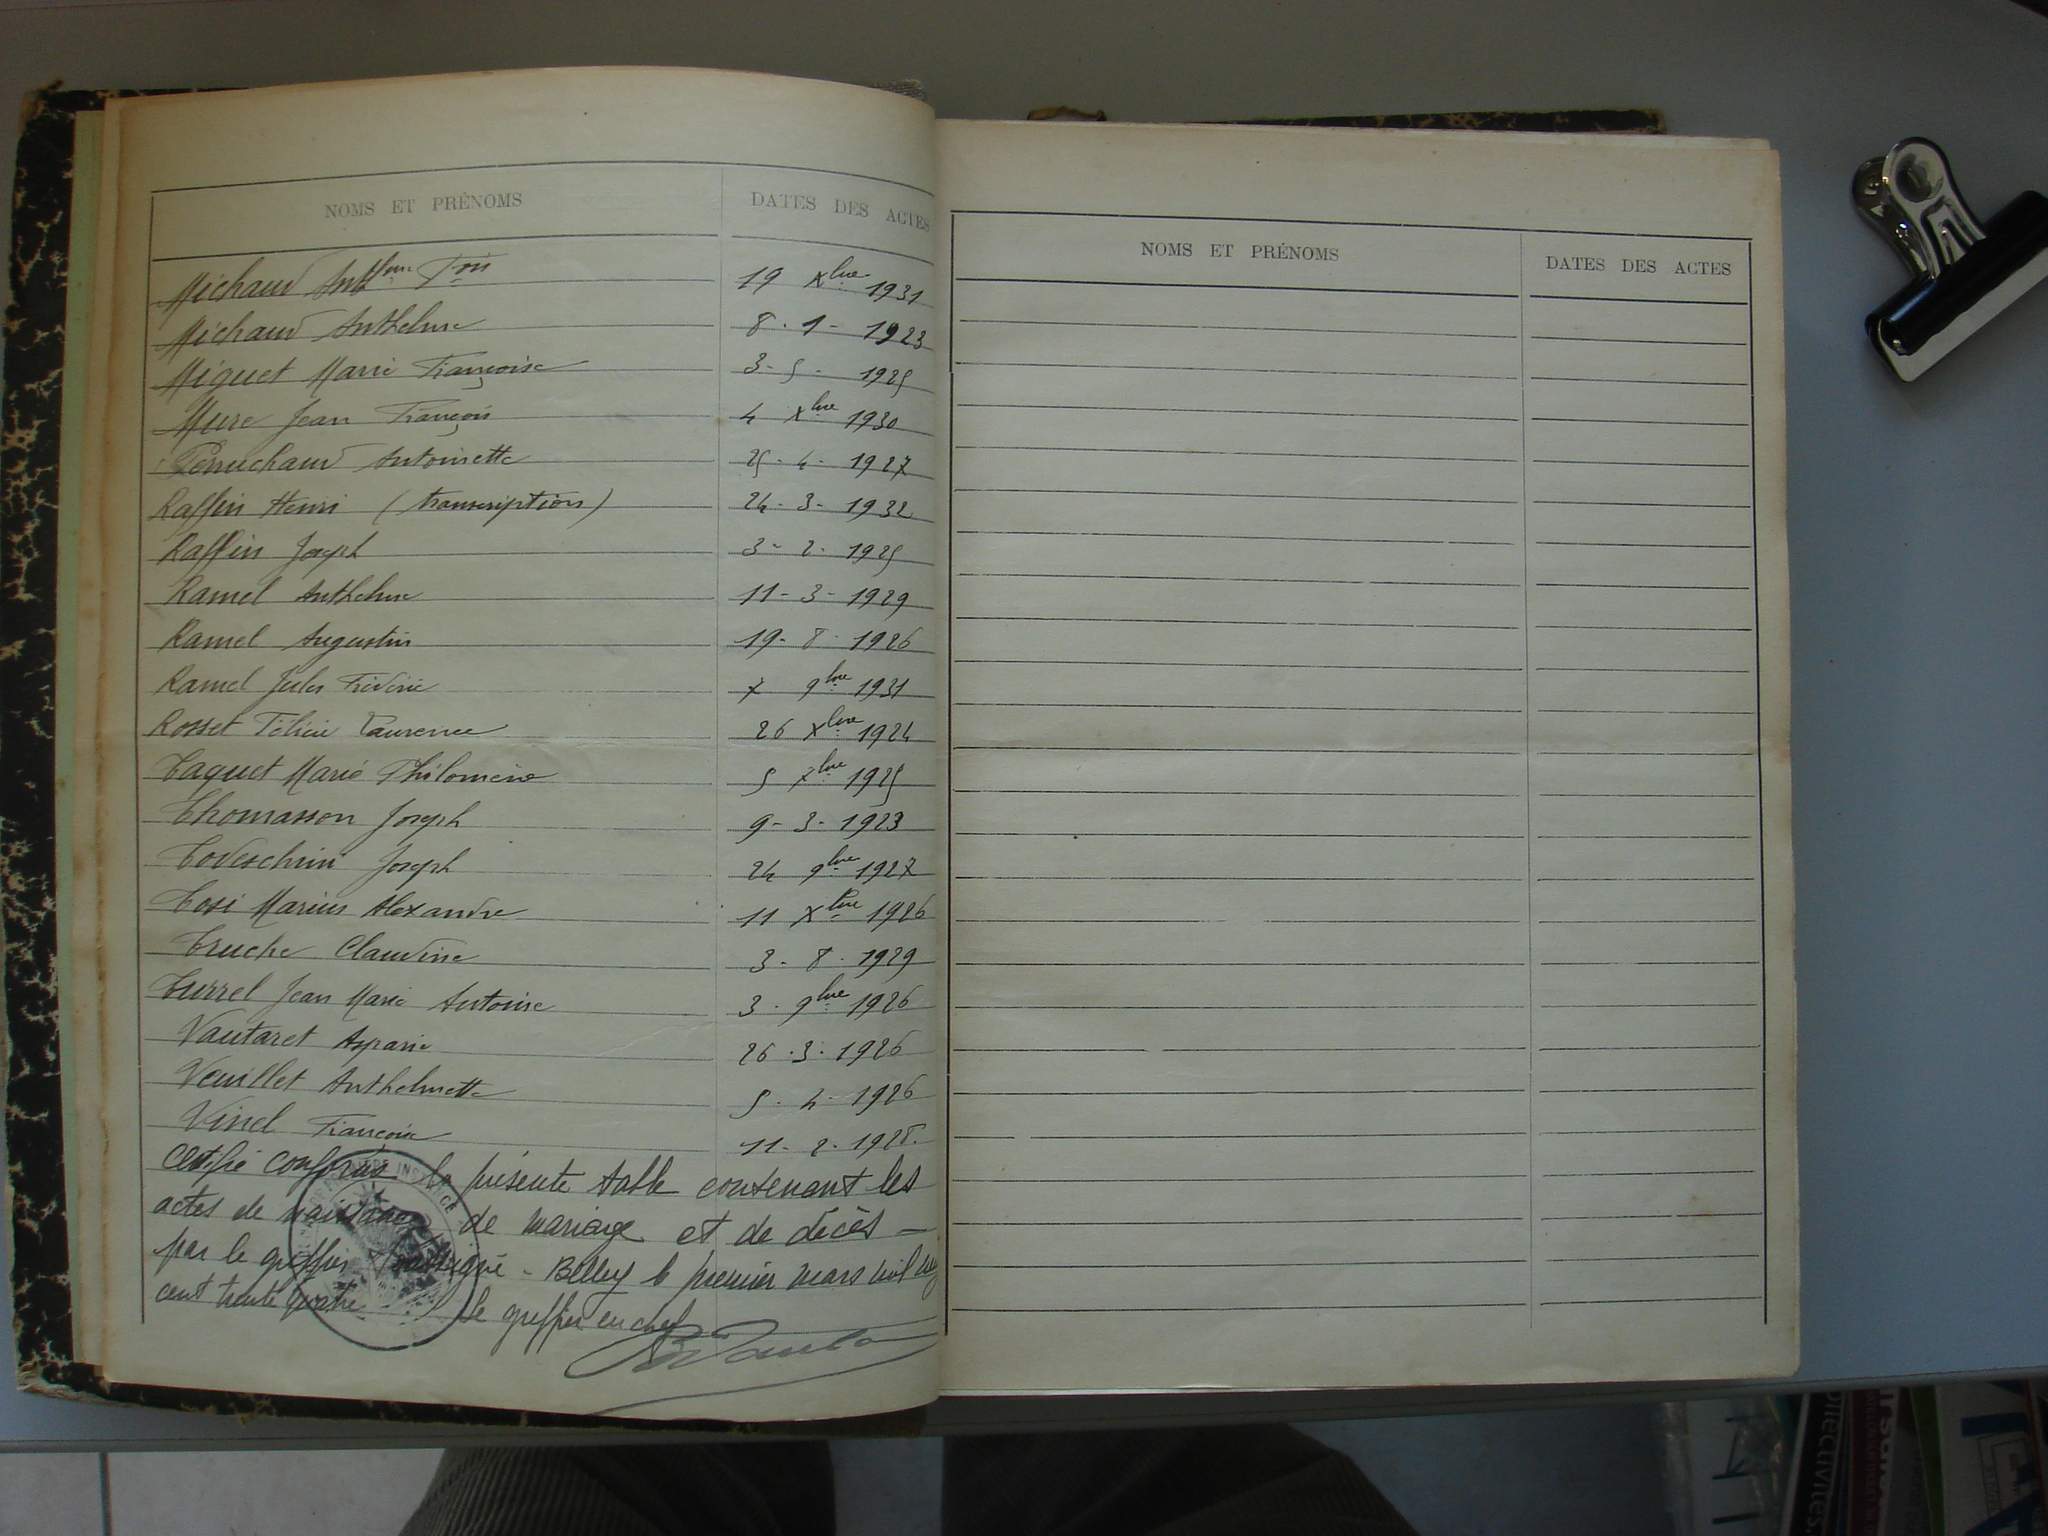 NOMS ET PRÉNOMS DATES DES ACTES
Michaud Anthme Fois 19 Xbre 1931
Michaud Anthelme 8 - 1 - 1923
Miguet Marie Françoise 3 - 5 - 1925
Mure Jean François 4 Xbre 1930
Perruchaud Antoinette 25 - 4 - 1927
Raffin Henri (transcription) 24 - 3 - 1932
Raffin Joseph 3 - 2 - 1925
Ramel Anthelme 11 - 3 - 1929
Ramel Augustin 19 - 8 - 1926
Ramel Jules Frédéric 7 9bre 1931
Rosset Félicie Laurence 26 Xbre 1924
Taquet Marie Philomène 5 7bre 1925
Thomasson Joseph 9 - 3 - 1923
Todeschini Joseph 24 9bre 1927
Tosi Marius Alexandre 11 Xbre 1926
Truche Claudine 3 - 8 - 1929
Turrel Jean Marie Antoine 3 - 9bre 1926
Vautaret Aspasie 26 - 3 - 1926
Veuillet Anthelmette 5 - 4 - 1926
Vinel 11 - 2 - 1928.
Certifié conforme la présente table contenant les
actes de naissance de mariage et de décès -
par le greffier soussigné - Belley le premier mars mil neuf
cent trente quatre le greffier en chef
NOMS ET PRÉNOMS DATES DES ACTES